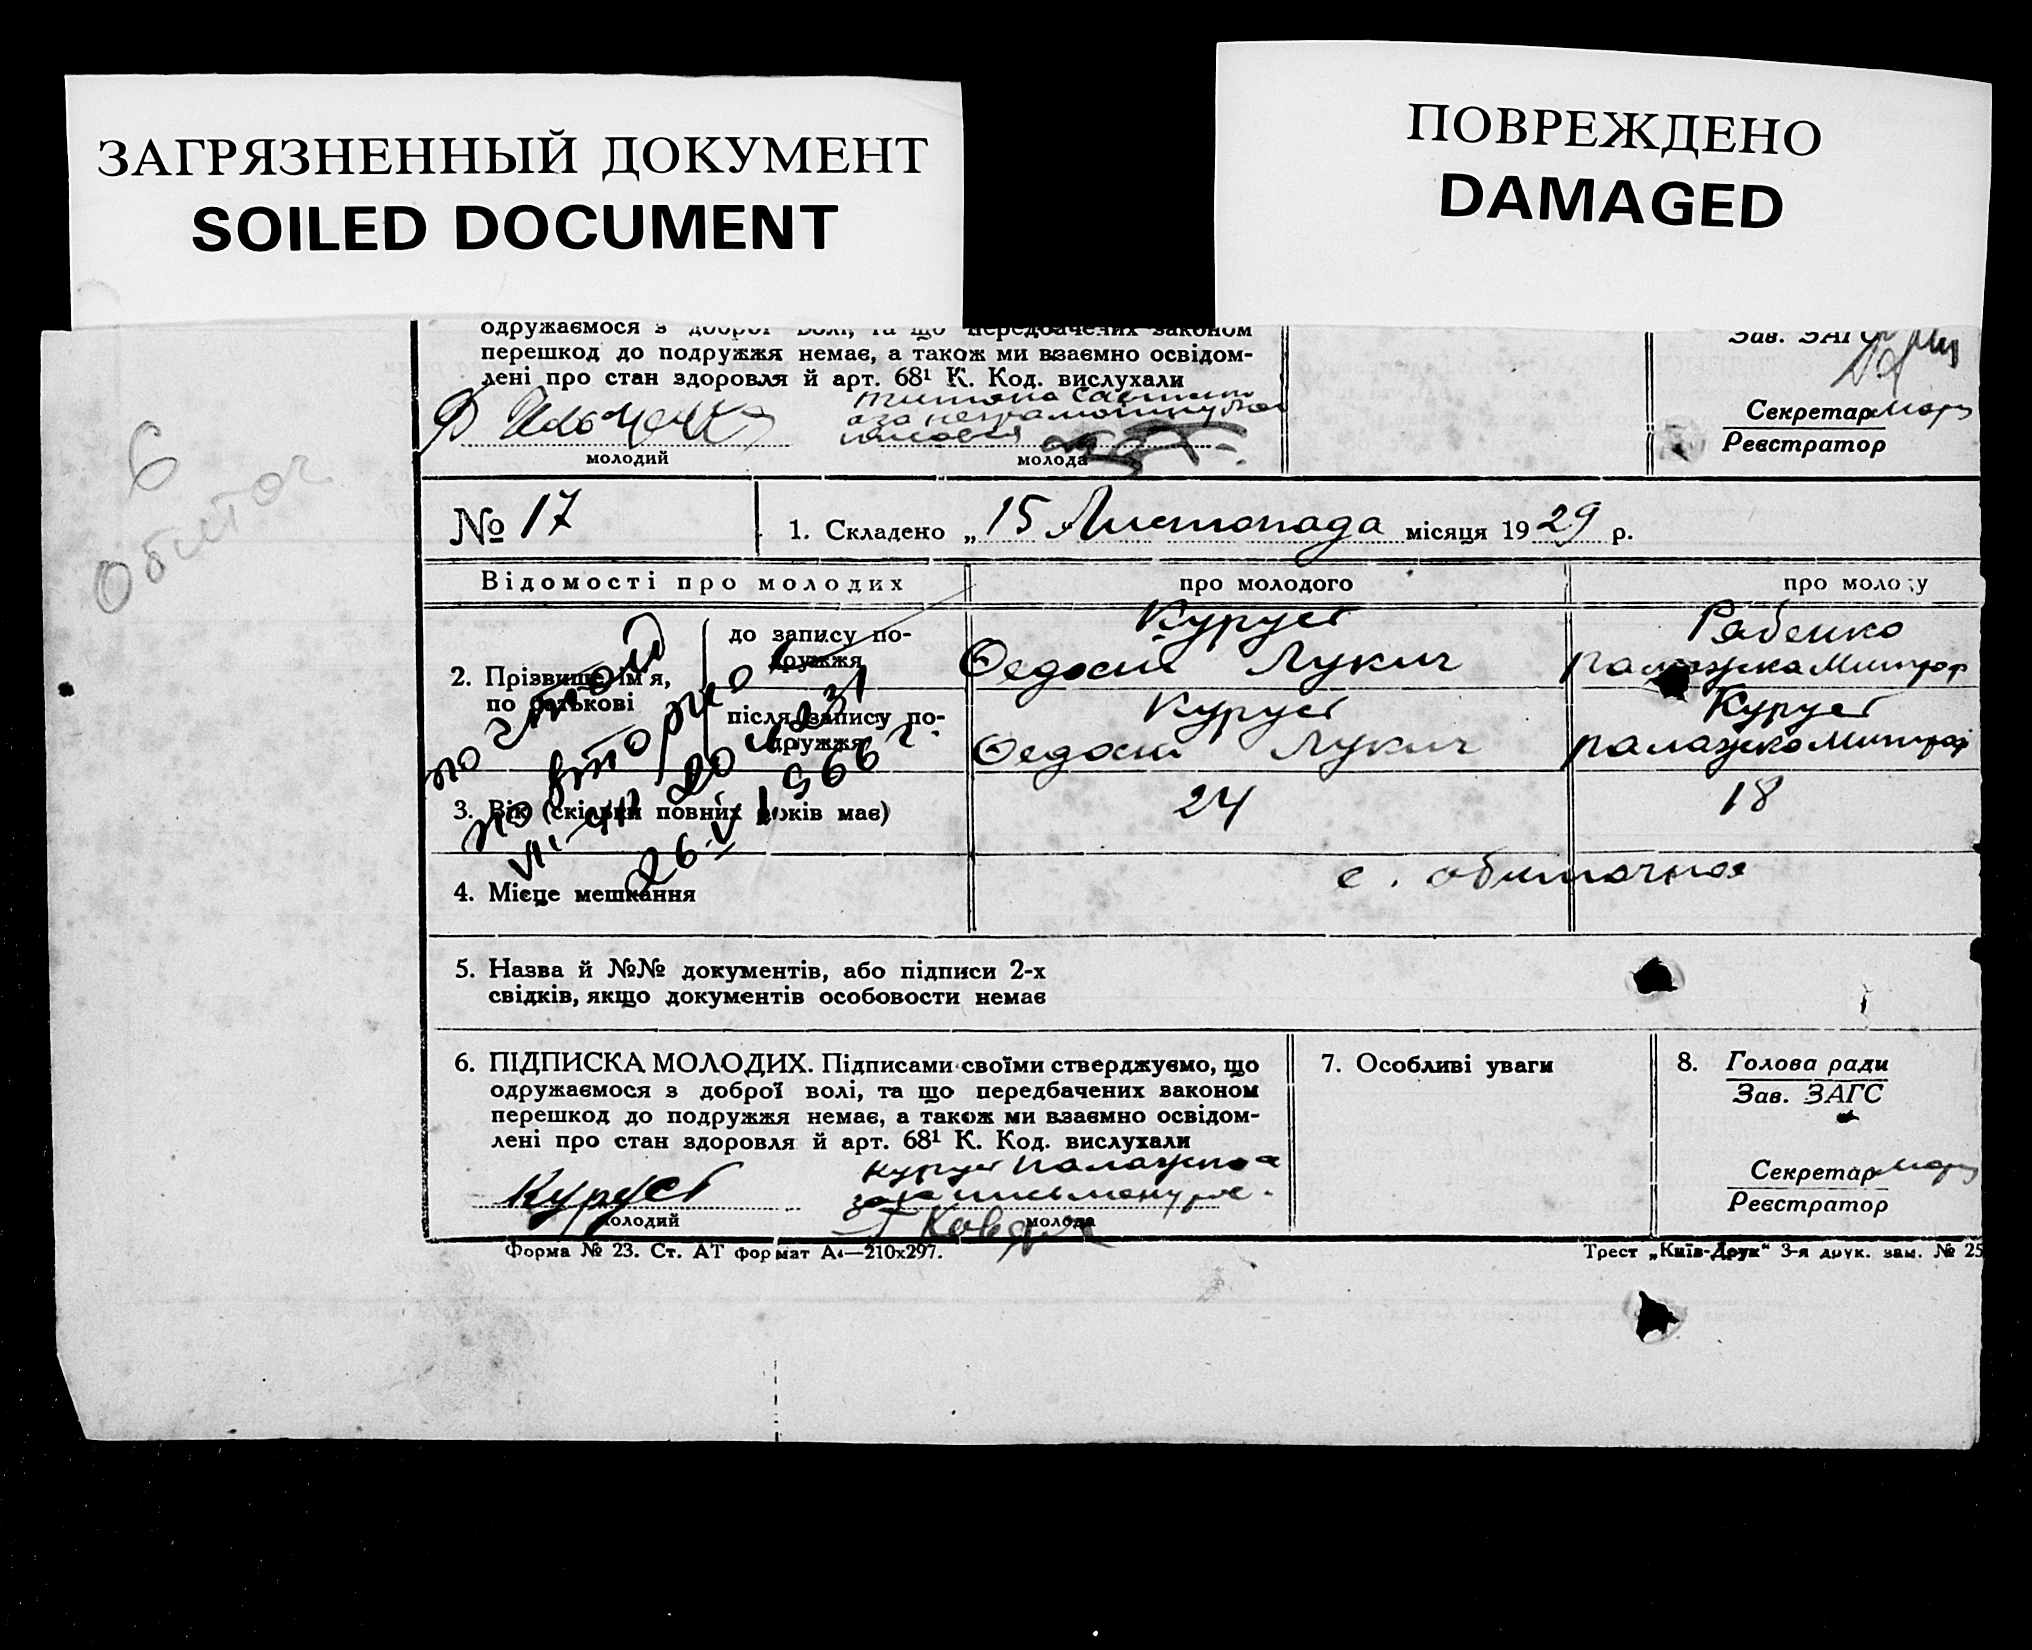 ЗАГРЯЗНЕННЫЙ ДОКУМЕНТ
SOILED DOCUMENT
ПОВРЕЖДЕНО
DAMAGED
6
Обиточ
одружаємося з доброї волі, та що передбачених законом
перешкод до подружжя немає, а також ми взаємно освідом-
лені про стан здоровля й арт. 68¹ К. Код. вислухали
молодий
молода
Зав. ЗАГС
Секретар
Реєстратор
№ 17
1. Складено „15 Листопада місяця 1929 р.
Відомості про молодих
про молодого
про молоду
2. Прізвище, ім'я,
по батькові
до запису по-
дружжя
Куруст
Федосий Лукич
Рябенко
Палажка Митроф
після запису по-
дружжя
Куруст
Федосий Лукич
Куруст
Палажка Митроф
повторно
26 VI 1966 г.
3. Вік (скільки повних років має)
24
18
4. Місце мешкання
с. обиточная
5. Назва й №№ документів, або підписи 2-х
свідків, якщо документів особовости немає
6. ПІДПИСКА МОЛОДИХ. Підписами своїми стверджуємо, що
одружаємося з доброї волі, та що передбачених законом
перешкод до подружжя немає, а також ми взаємно освідом-
лені про стан здоровля й арт. 68¹ К. Код. вислухали
Куруст
молодий
Куруст Палажка
молода
7. Особливі уваги
8. Голова ради
Зав. ЗАГС
Секретар
Реєстратор
Форма № 23. Ст. АТ формат А₄—210х297.
Трест „Київ-Друк“ 3-я друк. зам. № 25